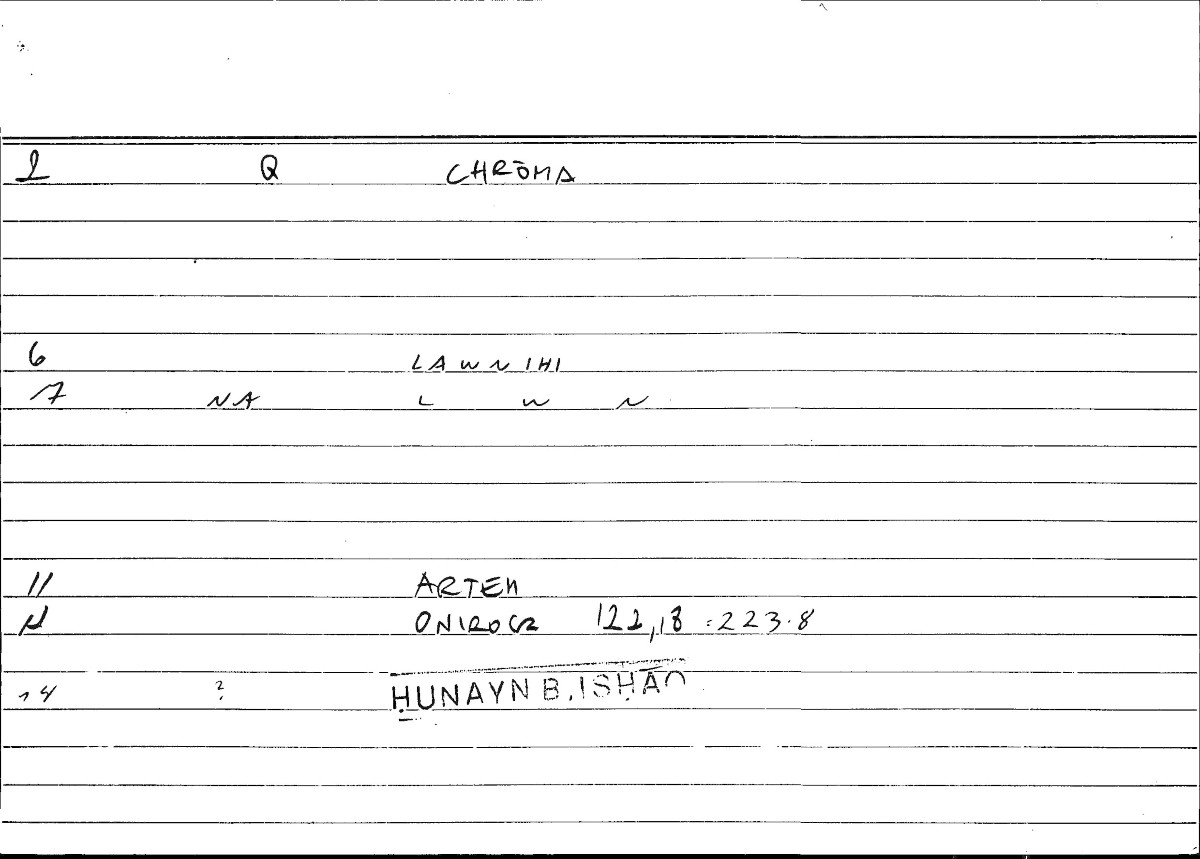 2 Q CHRŌMA
6 LAWNIHI
7 NA L W N
11 ARTEM
ONIROCR 122,18 : 223.8
14 ? ḤUNAYN B. ISḤĀQ